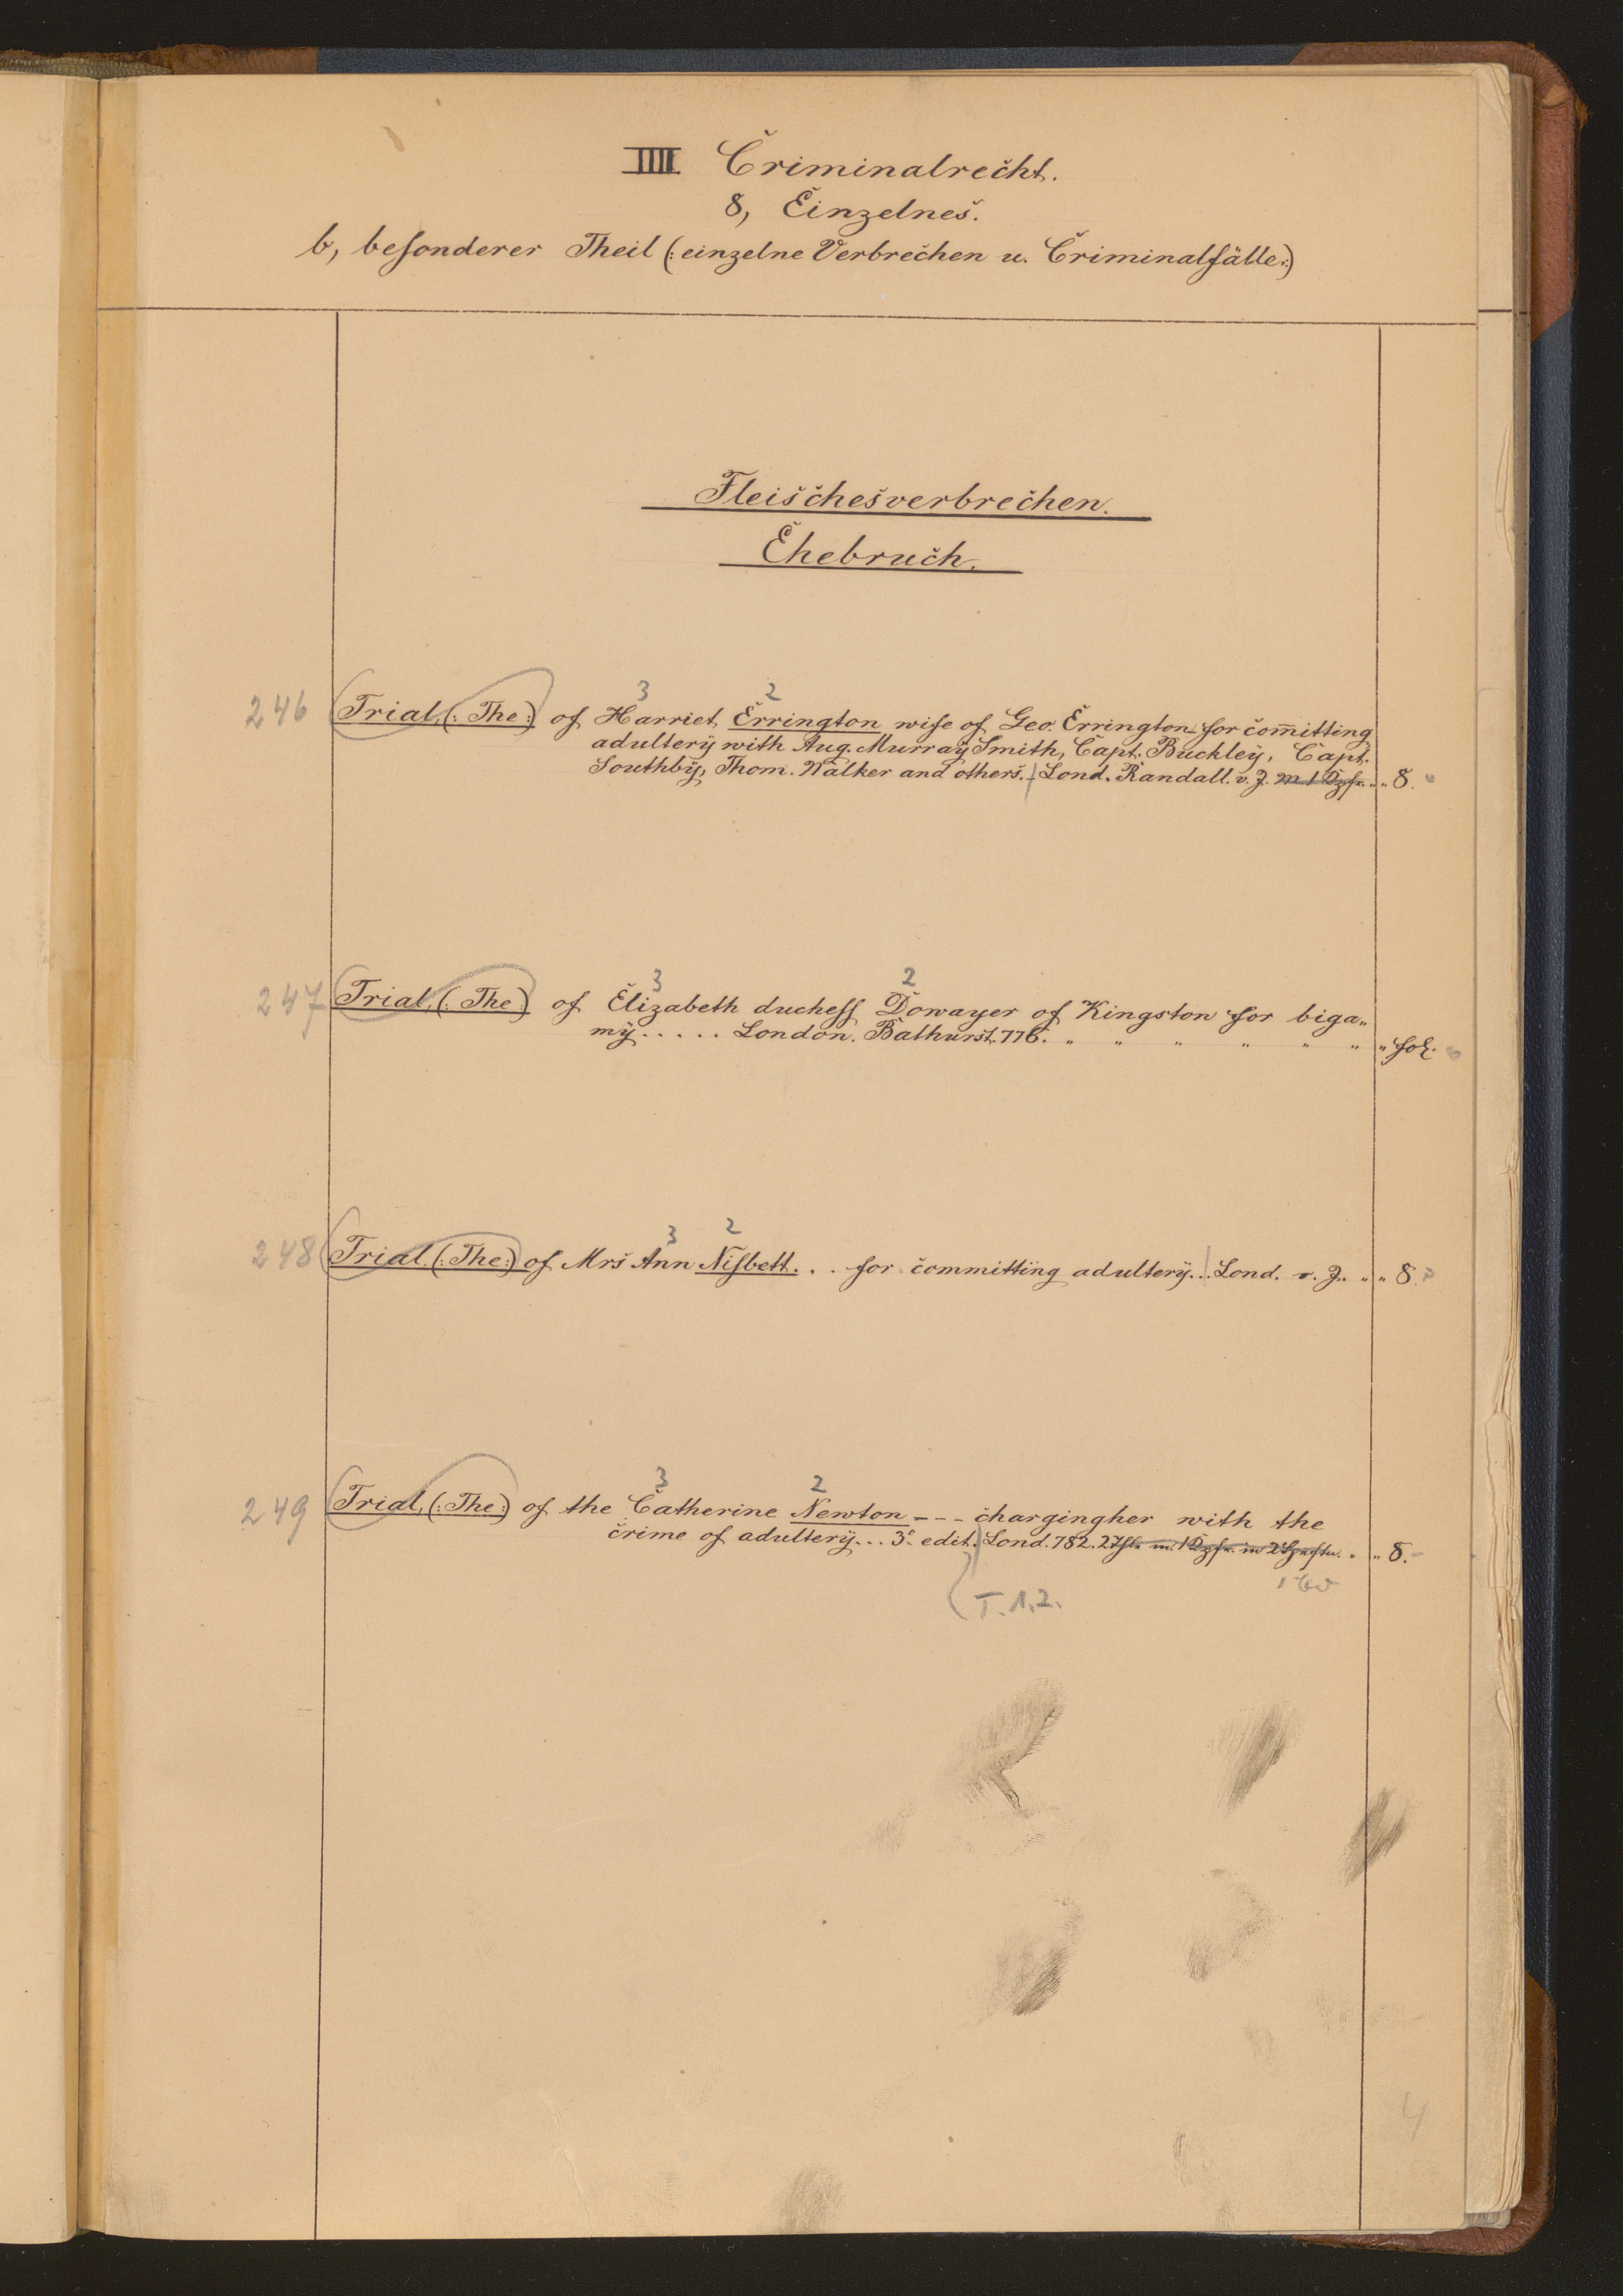 IIII Criminalrecht.
8, Einzelnes.
b, besonderer Theil (: einzelne Verbrechen u. Criminalfälle :)
Fleischesverbrechen.
Ehebruch.
3 2
246 Trial, (: The :) of Harriet Errington wife of Geo. Errington for com̄itting
adultery with Aug. Murray Smith, Capt. Buckley, Capt.
Southby, Thom. Walker and others. Lond. Randall. o. J. m. 1 " " 8.
3 2
247 Trial, (: The :) of Elizabeth duchess Dowayer of Kingston for biga„
my . . . . . London. Bathurst. 776. " " " " " " " fol.
3 2
248 Trial, (: The :) of Mrs Ann Nisbett. . . for committing adultery... Lond. o. J. " " 8.
3 2
249 Trial, (: The :) of the Catherine Newton - - - chargingher with the
crime of adultery... 3e edit. Lond. 782. 2 " " 8.
T. 1.2.
4